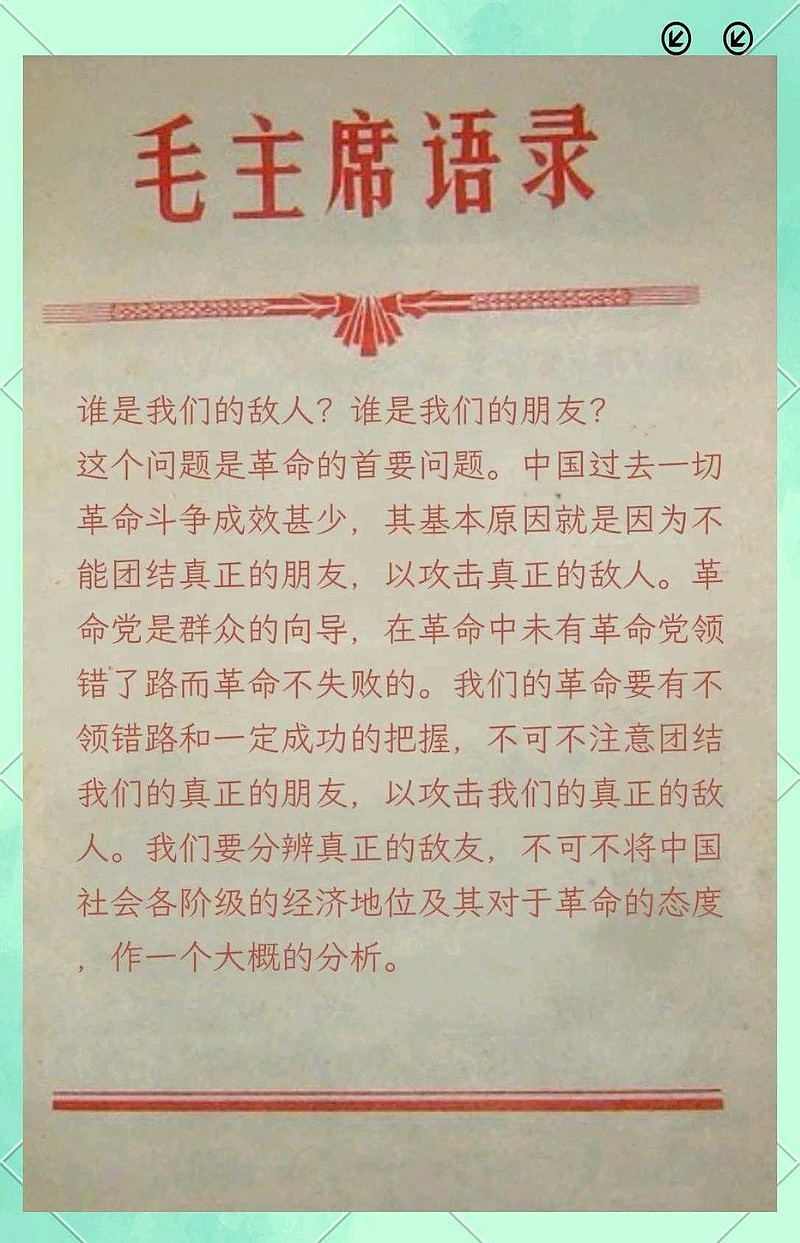 毛主席语录
谁是我们的敌人？谁是我们的朋友？
这个问题是革命的首要问题。中国过去一切
革命斗争成效甚少，其基本原因就是因为不
能团结真正的朋友，以攻击真正的敌人。革
命党是群众的向导，在革命中未有革命党领
错了路而革命不失败的。我们的革命要有不
领错路和一定成功的把握，不可不注意团结
我们的真正的朋友，以攻击我们的真正的敌
人。我们要分辨真正的敌友，不可不将中国
社会各阶级的经济地位及其对于革命的态度
，作一个大概的分析。